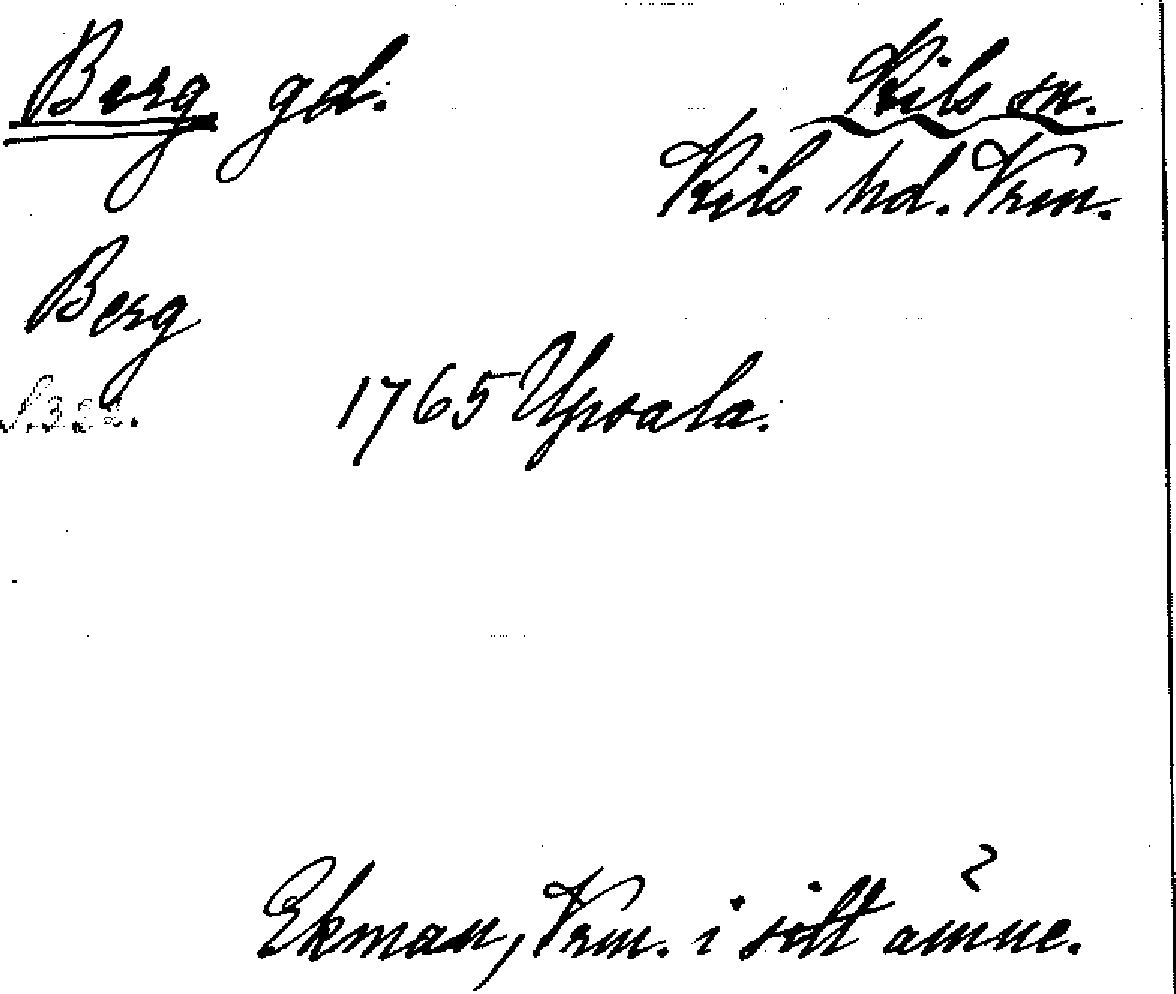 Berg gd. Kils sn.
Kils hd. Vrm.
Berg
1765 Upsala.
2
Ekman, Vrm. i sitt ämne.